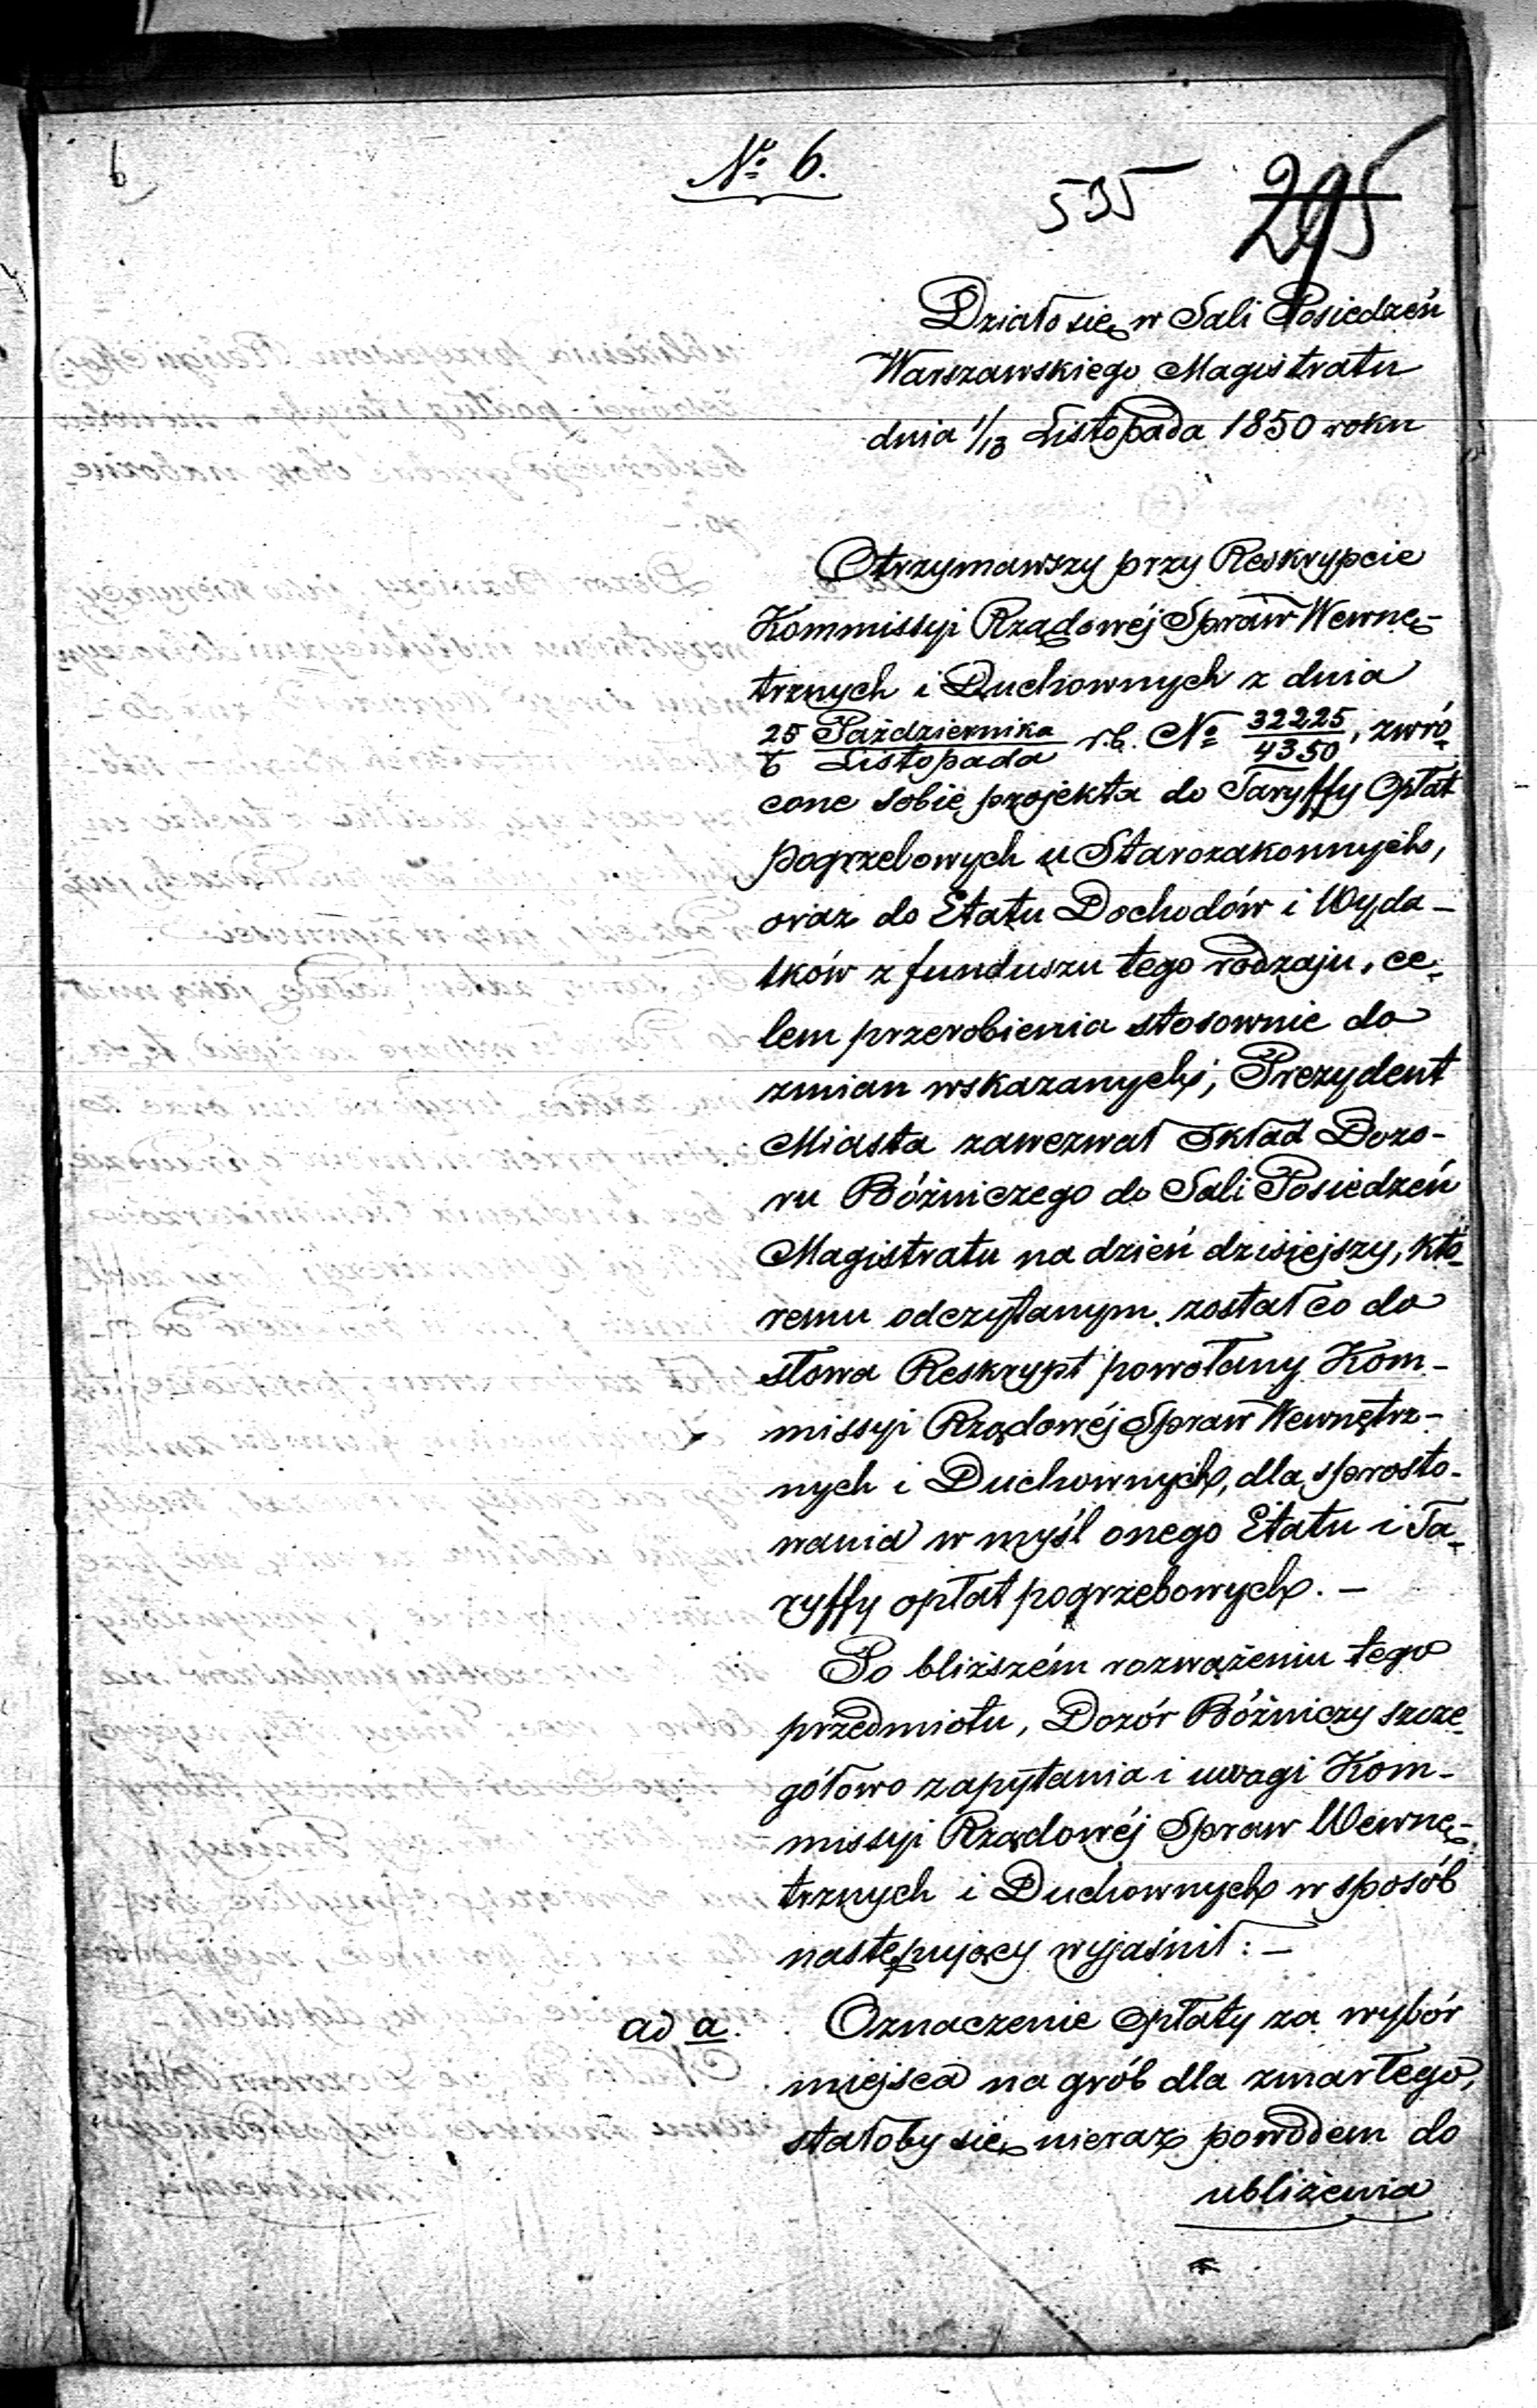 6
№ 6.
535 295
Działo się w Sali Posiedzeń
Warszawskiego Magistratu
dnia 1/13 Listopada 1850 roku
Otrzymawszy przy Reskrypcie
Kommissyi Rządowéj Spraw Wewnę-
trznych i Duchownych z dnia
25 Października / 6 Listopada r.b. № 32225/4350, zwró-
cone sobie projekta do Taryffy Opłat
pogrzebowych u Starozakonnych,
oraz do Etatu Dochodów i Wyda-
tków z funduszu tego rodzaju, ce-
lem przerobienia stosownie do
zmian wskazanych; Prezydent
Miasta zawezwał Skład Dozo-
ru Bóżniczego do Sali Posiedzeń
Magistratu na dzień dzisiejszy, któ-
remu odczytanym został co do
słowa Reskrypt powołany Kom-
missyi Rządowéj Spraw Wewnętrz-
nych i Duchownych, dla sprosto-
wania w myśl onego Etatu i Ta-
ryffy opłat pogrzebowych. —
Po bliższém rozważeniu tego
przedmiotu, Dozór Bóżniczy szcze-
gółowo zapytania i uwagi Kom-
missyi Rządowéj Spraw Wewnę-
trznych i Duchownych w sposób
następujący wyjaśnił: —
ad a. Oznaczenie opłaty za wybór
miejsca na grób dla zmarłego,
stałoby się nieraz powodem do
ubliżenia